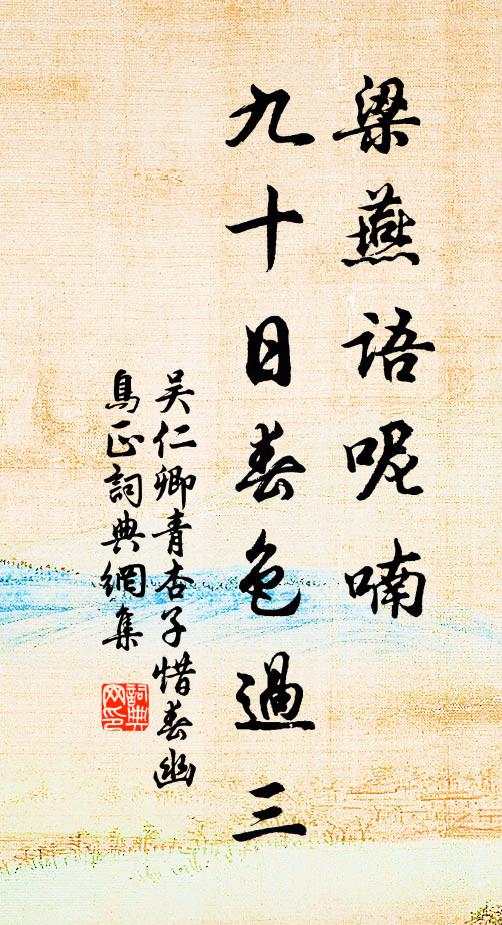 梁燕語呢喃
九十日春色過三
吴仁卿青杏子惜春幽
鳥正詞典網集
詞典
网印